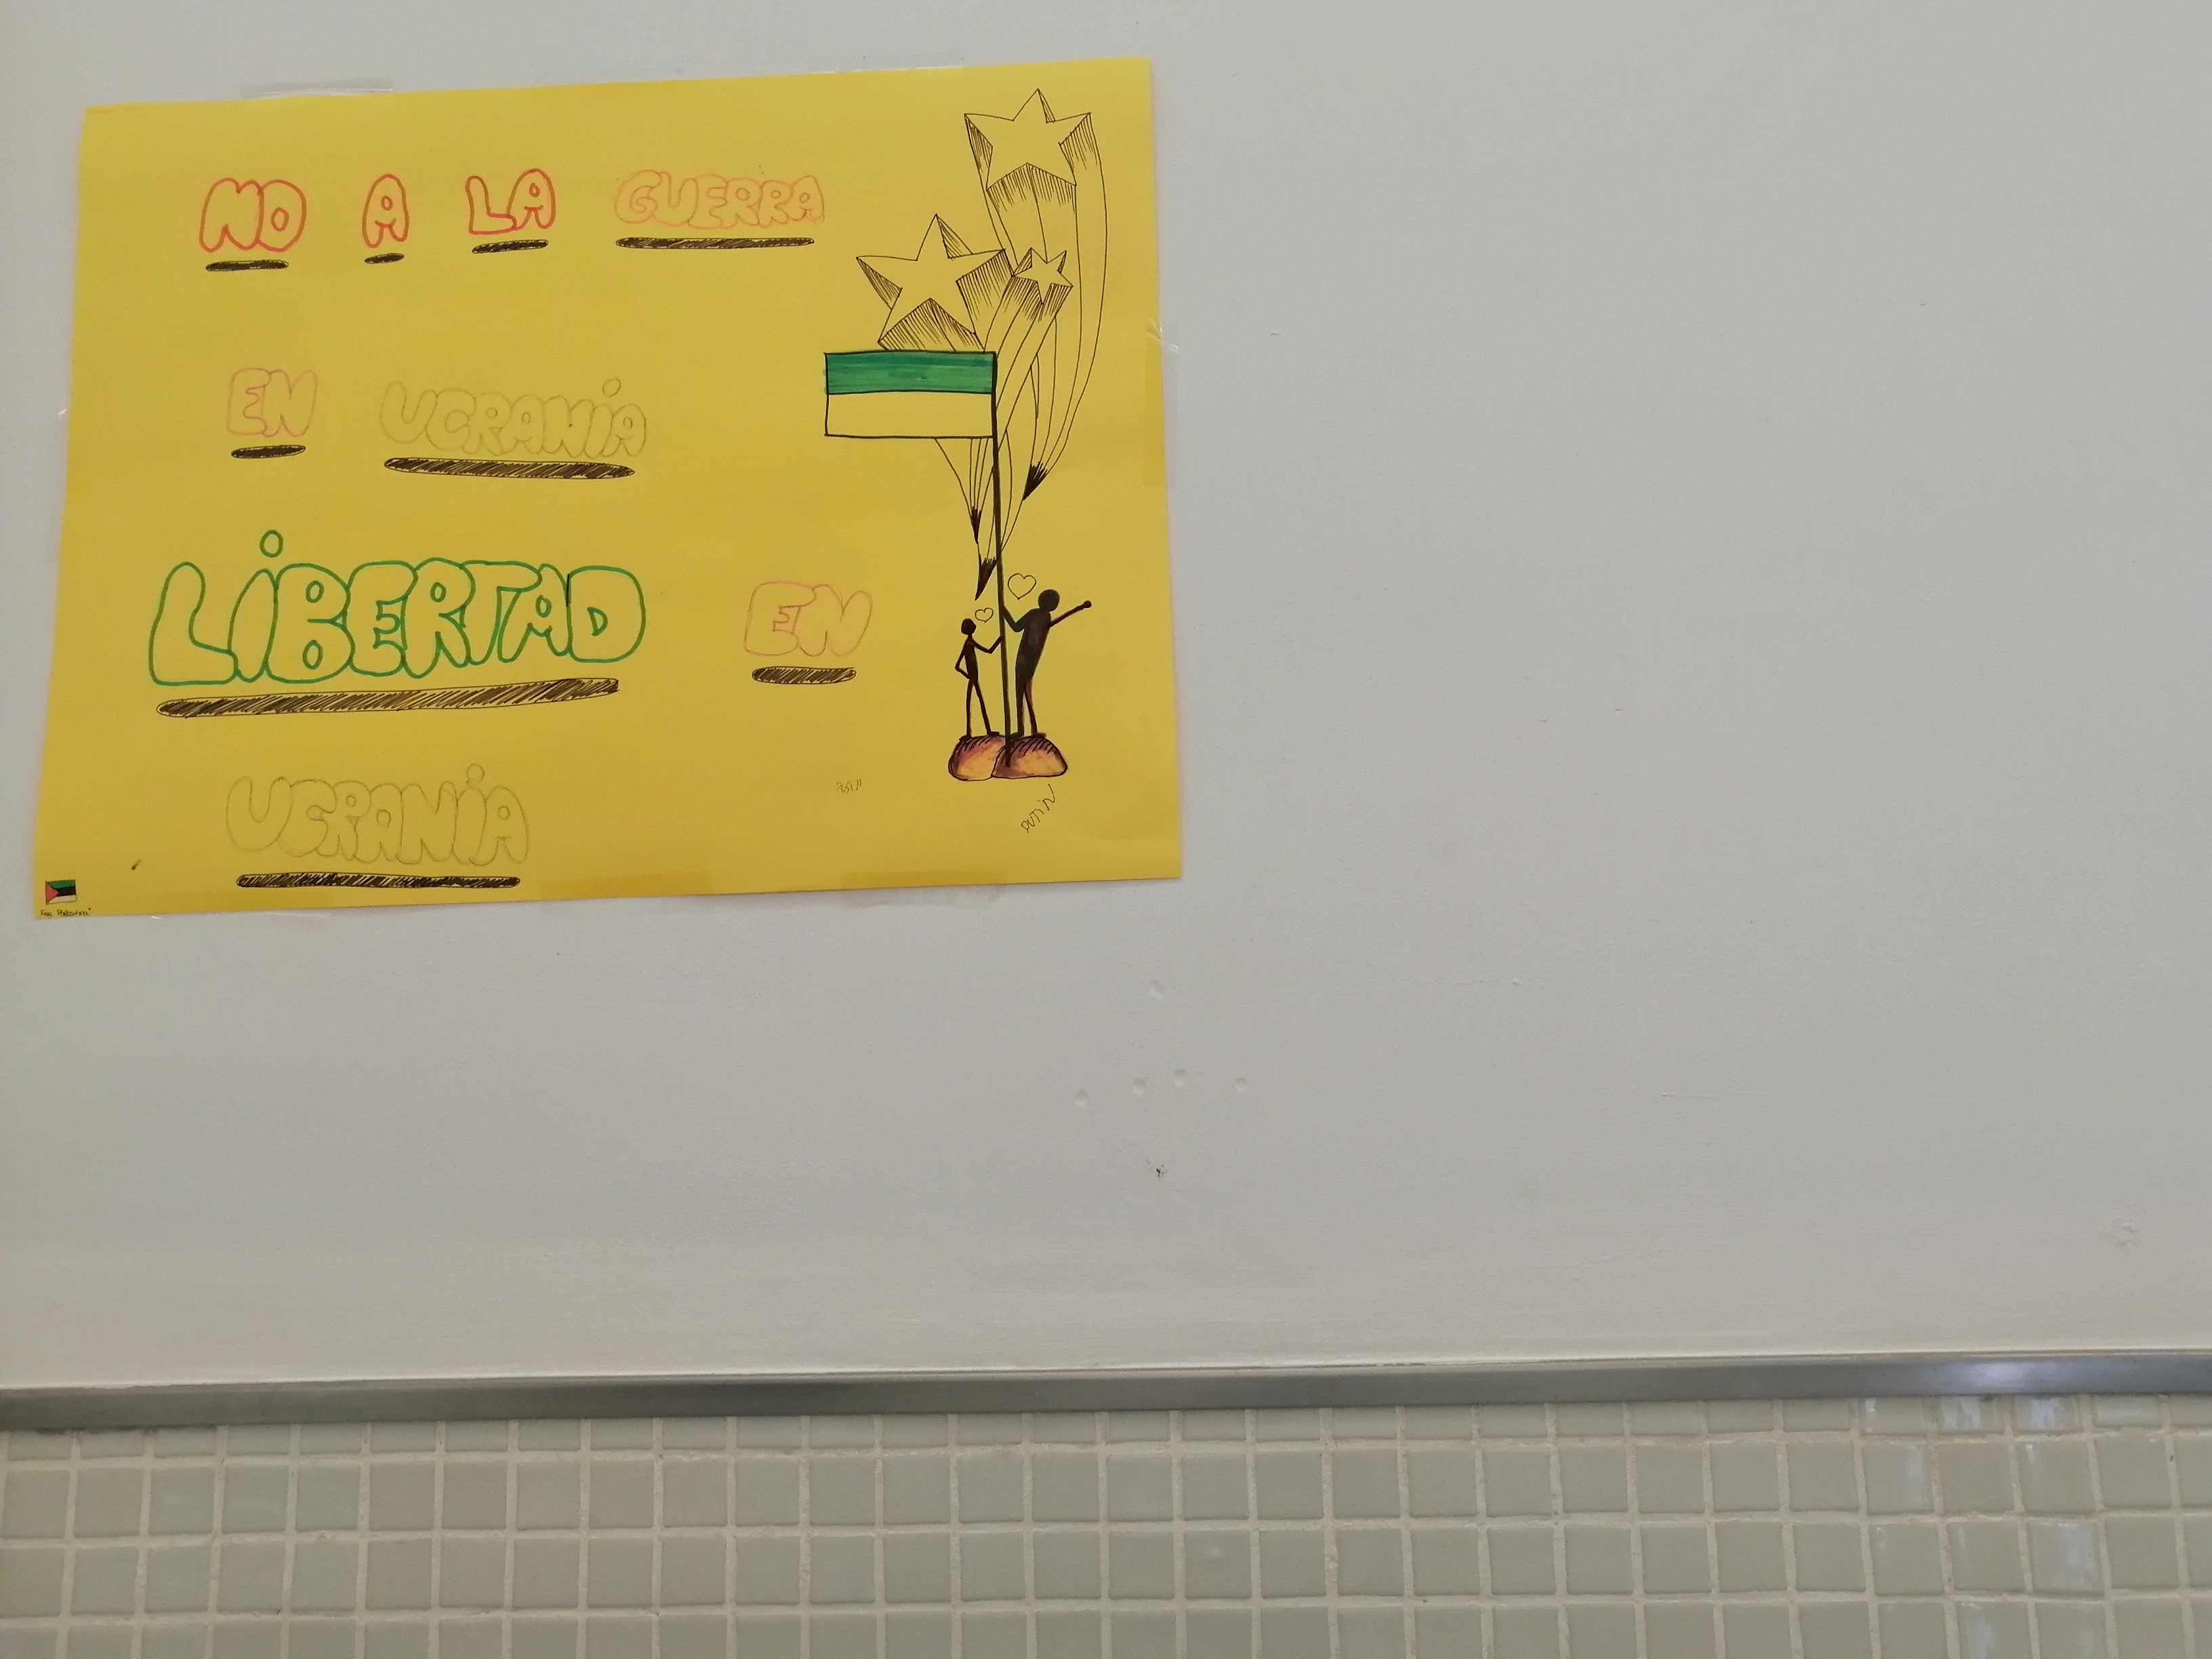 NO A LA GUERRA
EN UCRANIA
LIBERTAD EN
UCRANIA
PUTIN
Free Palestina"